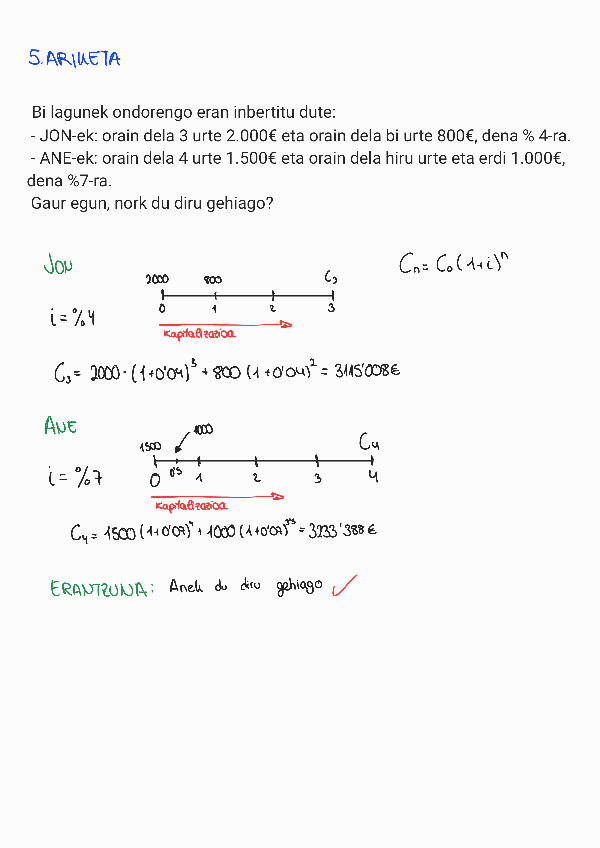 5. ARIKETA
Bi lagunek ondorengo eran inbertitu dute:
- JON-ek: orain dela 3 urte 2.000€ eta orain dela bi urte 800€, dena % 4-ra.
- ANE-ek: orain dela 4 urte 1.500€ eta orain dela hiru urte eta erdi 1.000€,
dena %7-ra.
Gaur egun, nork du diru gehiago?
JON
Cn = C0 (1+i)^n
2000 800 C3
0 1 2 3
i = %4
Kapitalizazioa
C3 = 2000 · (1+0'04)^3 + 800 (1+0'04)^2 = 3115'008€
ANE
1000
1500 C4
i = %7
0 0'5 1 2 3 4
Kapitalizazioa
C4 = 1500 (1+0'07)^4 + 1000 (1+0'07)^3'5 = 3233'388€
ERANTZUNA: Anek du diru gehiago ✓